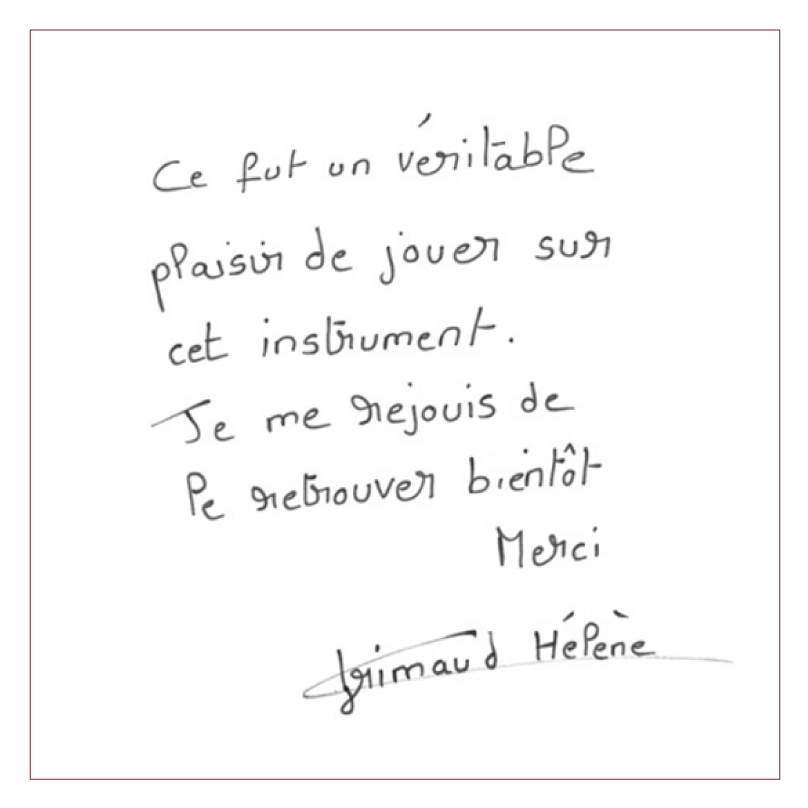 Ce fut un véritable
plaisir de jouer sur
cet instrument.
Je me rejouis de
le retrouver bientôt
Merci
Grimaud Hélène